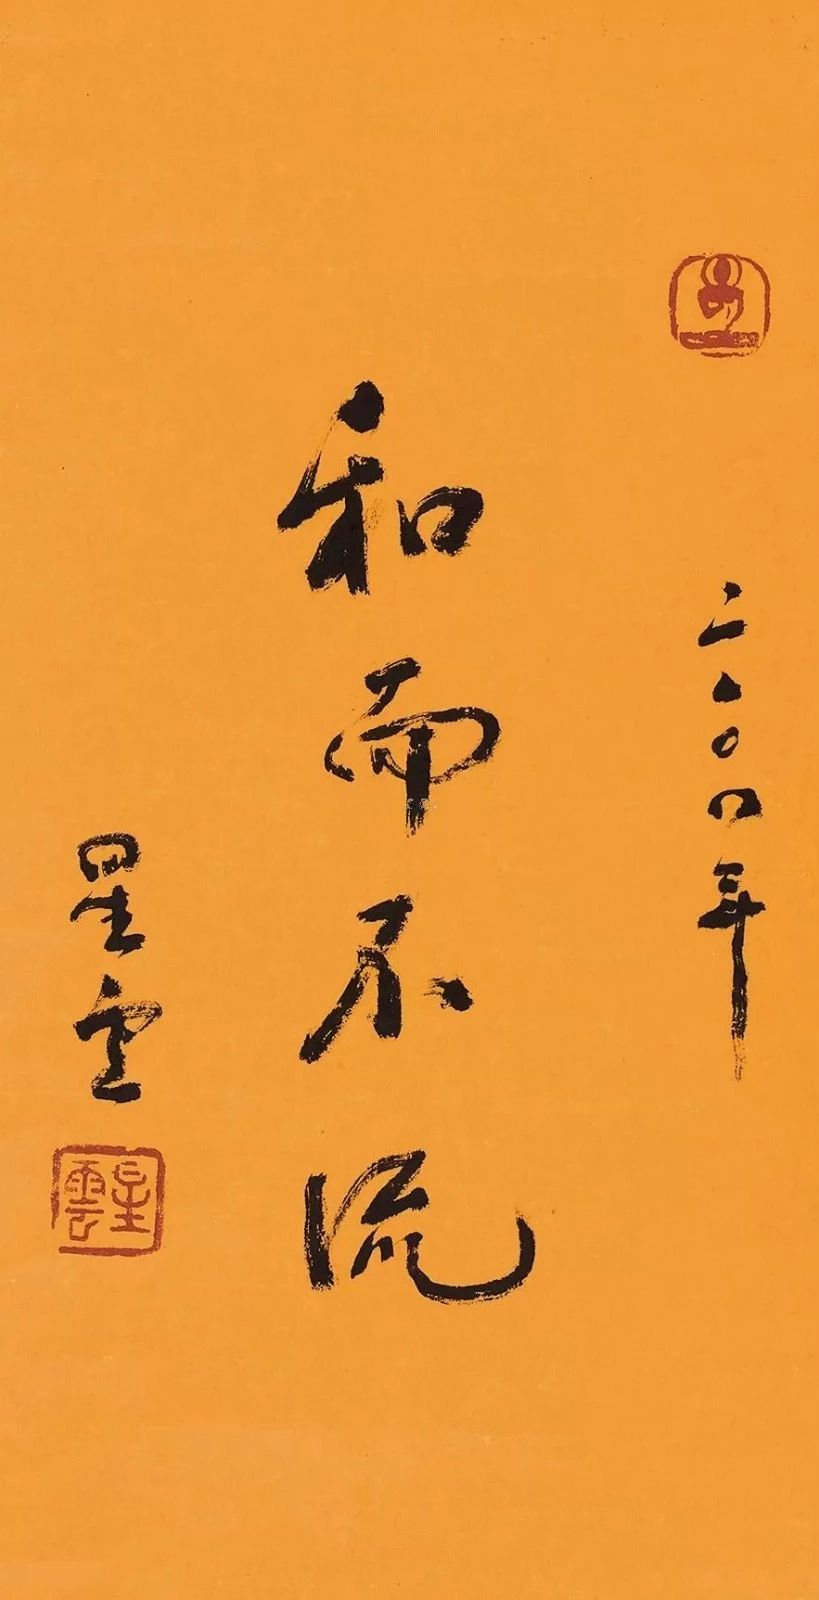 二〇〇四年
和而不流
星雲
星雲